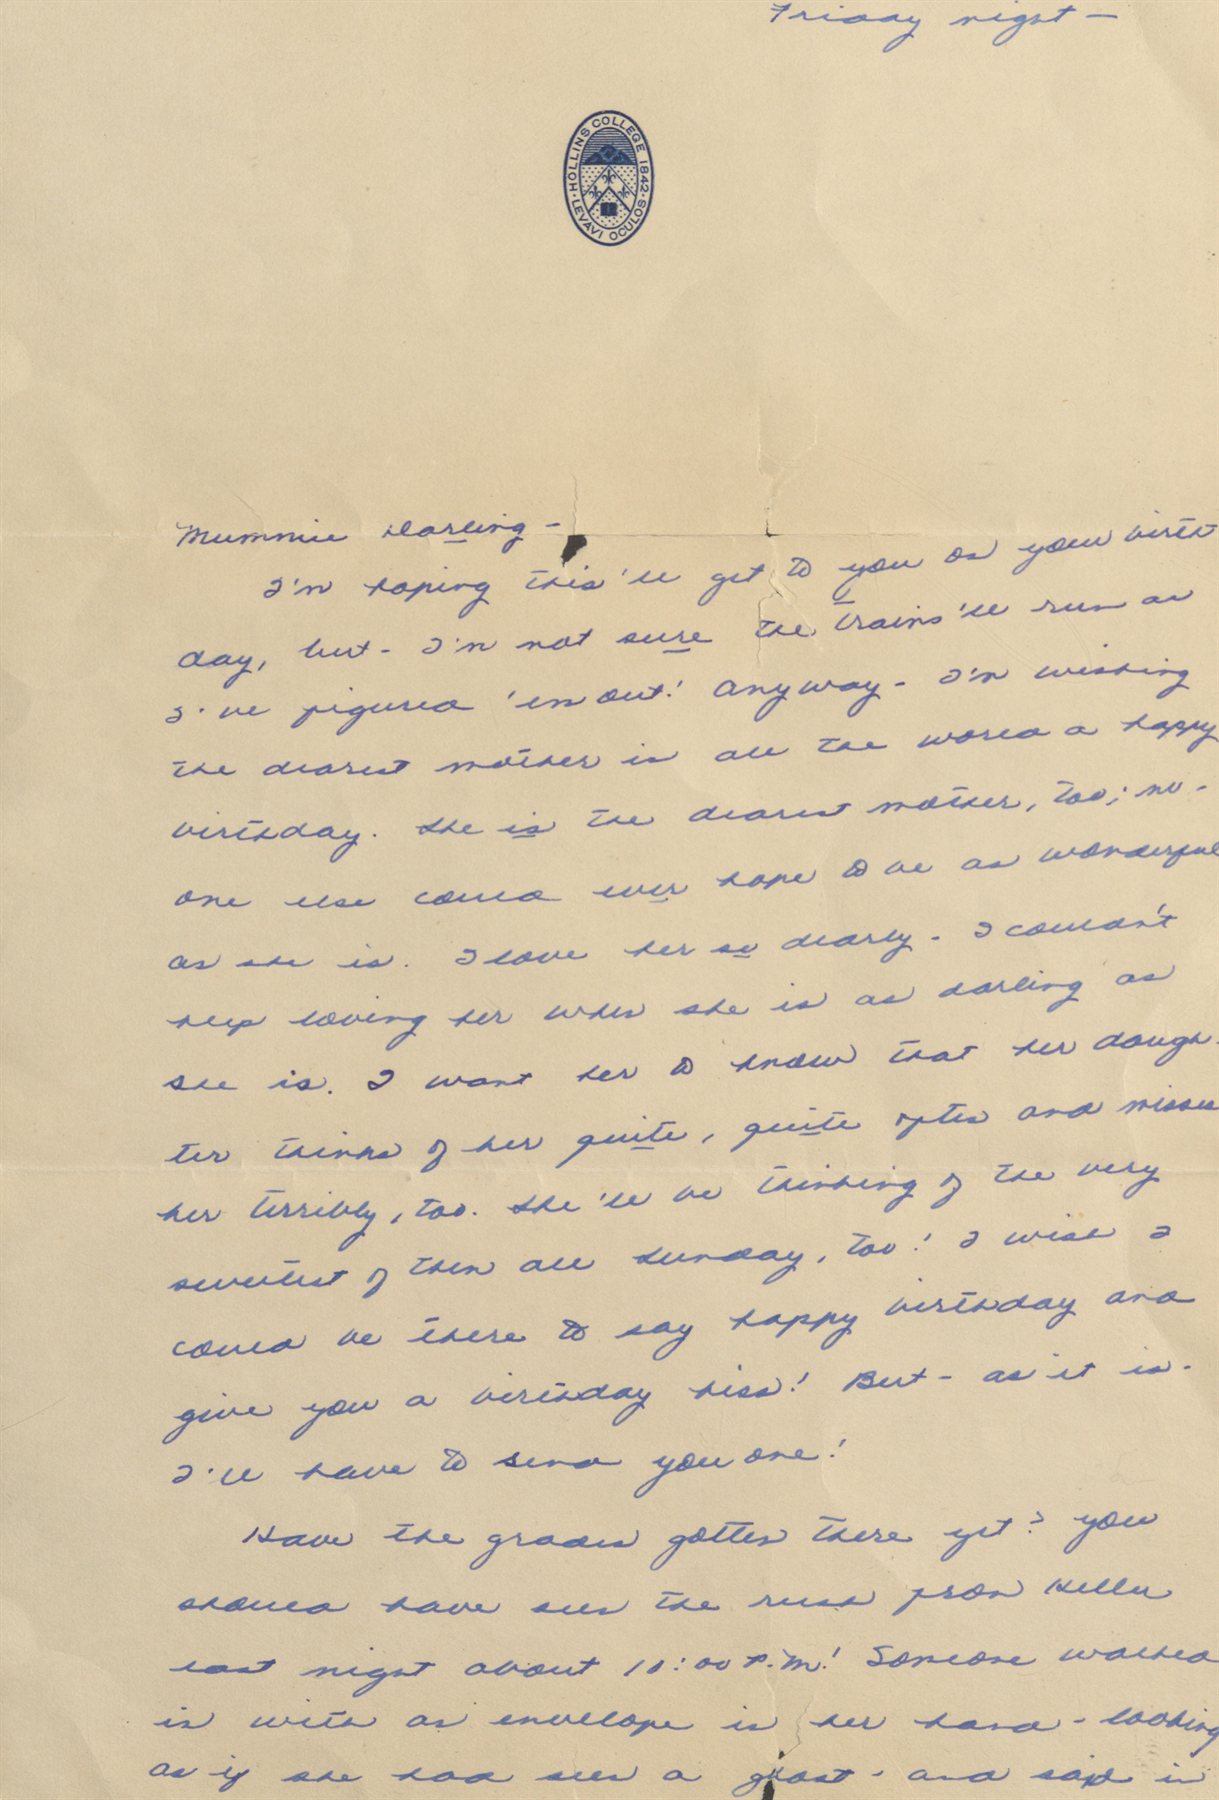 Friday night —
HOLLINS COLLEGE 1842 · LEVAVI OCULOS ·
Mummie Darling —
I'm hoping this'll get to you on your birth
day, but - I'm not sure the trains'll run as
I've figured 'em out! Anyway - I'm wishing
the dearest mother in all the world a happy
birthday. She is the dearest mother, too; no-
one else could ever hope to be as wonderful
as she is. I love her so dearly - I couldn't
help loving her when she is as darling as
she is. I want her to know that her daugh-
ter thinks of her quite, quite often and misses
her terribly, too. She'll be thinking of the very
sweetest of them all Sunday, too! I wish I
could be there to say happy birthday and
give you a birthday kiss! But - as it is -
I'll have to send you one!
Have the grades gotten there yet? You
should have seen the rush from Keller
last night about 10:00 P.M.! Someone walked
in with an envelope in her hand - looking
as if she had seen a ghost - and said in